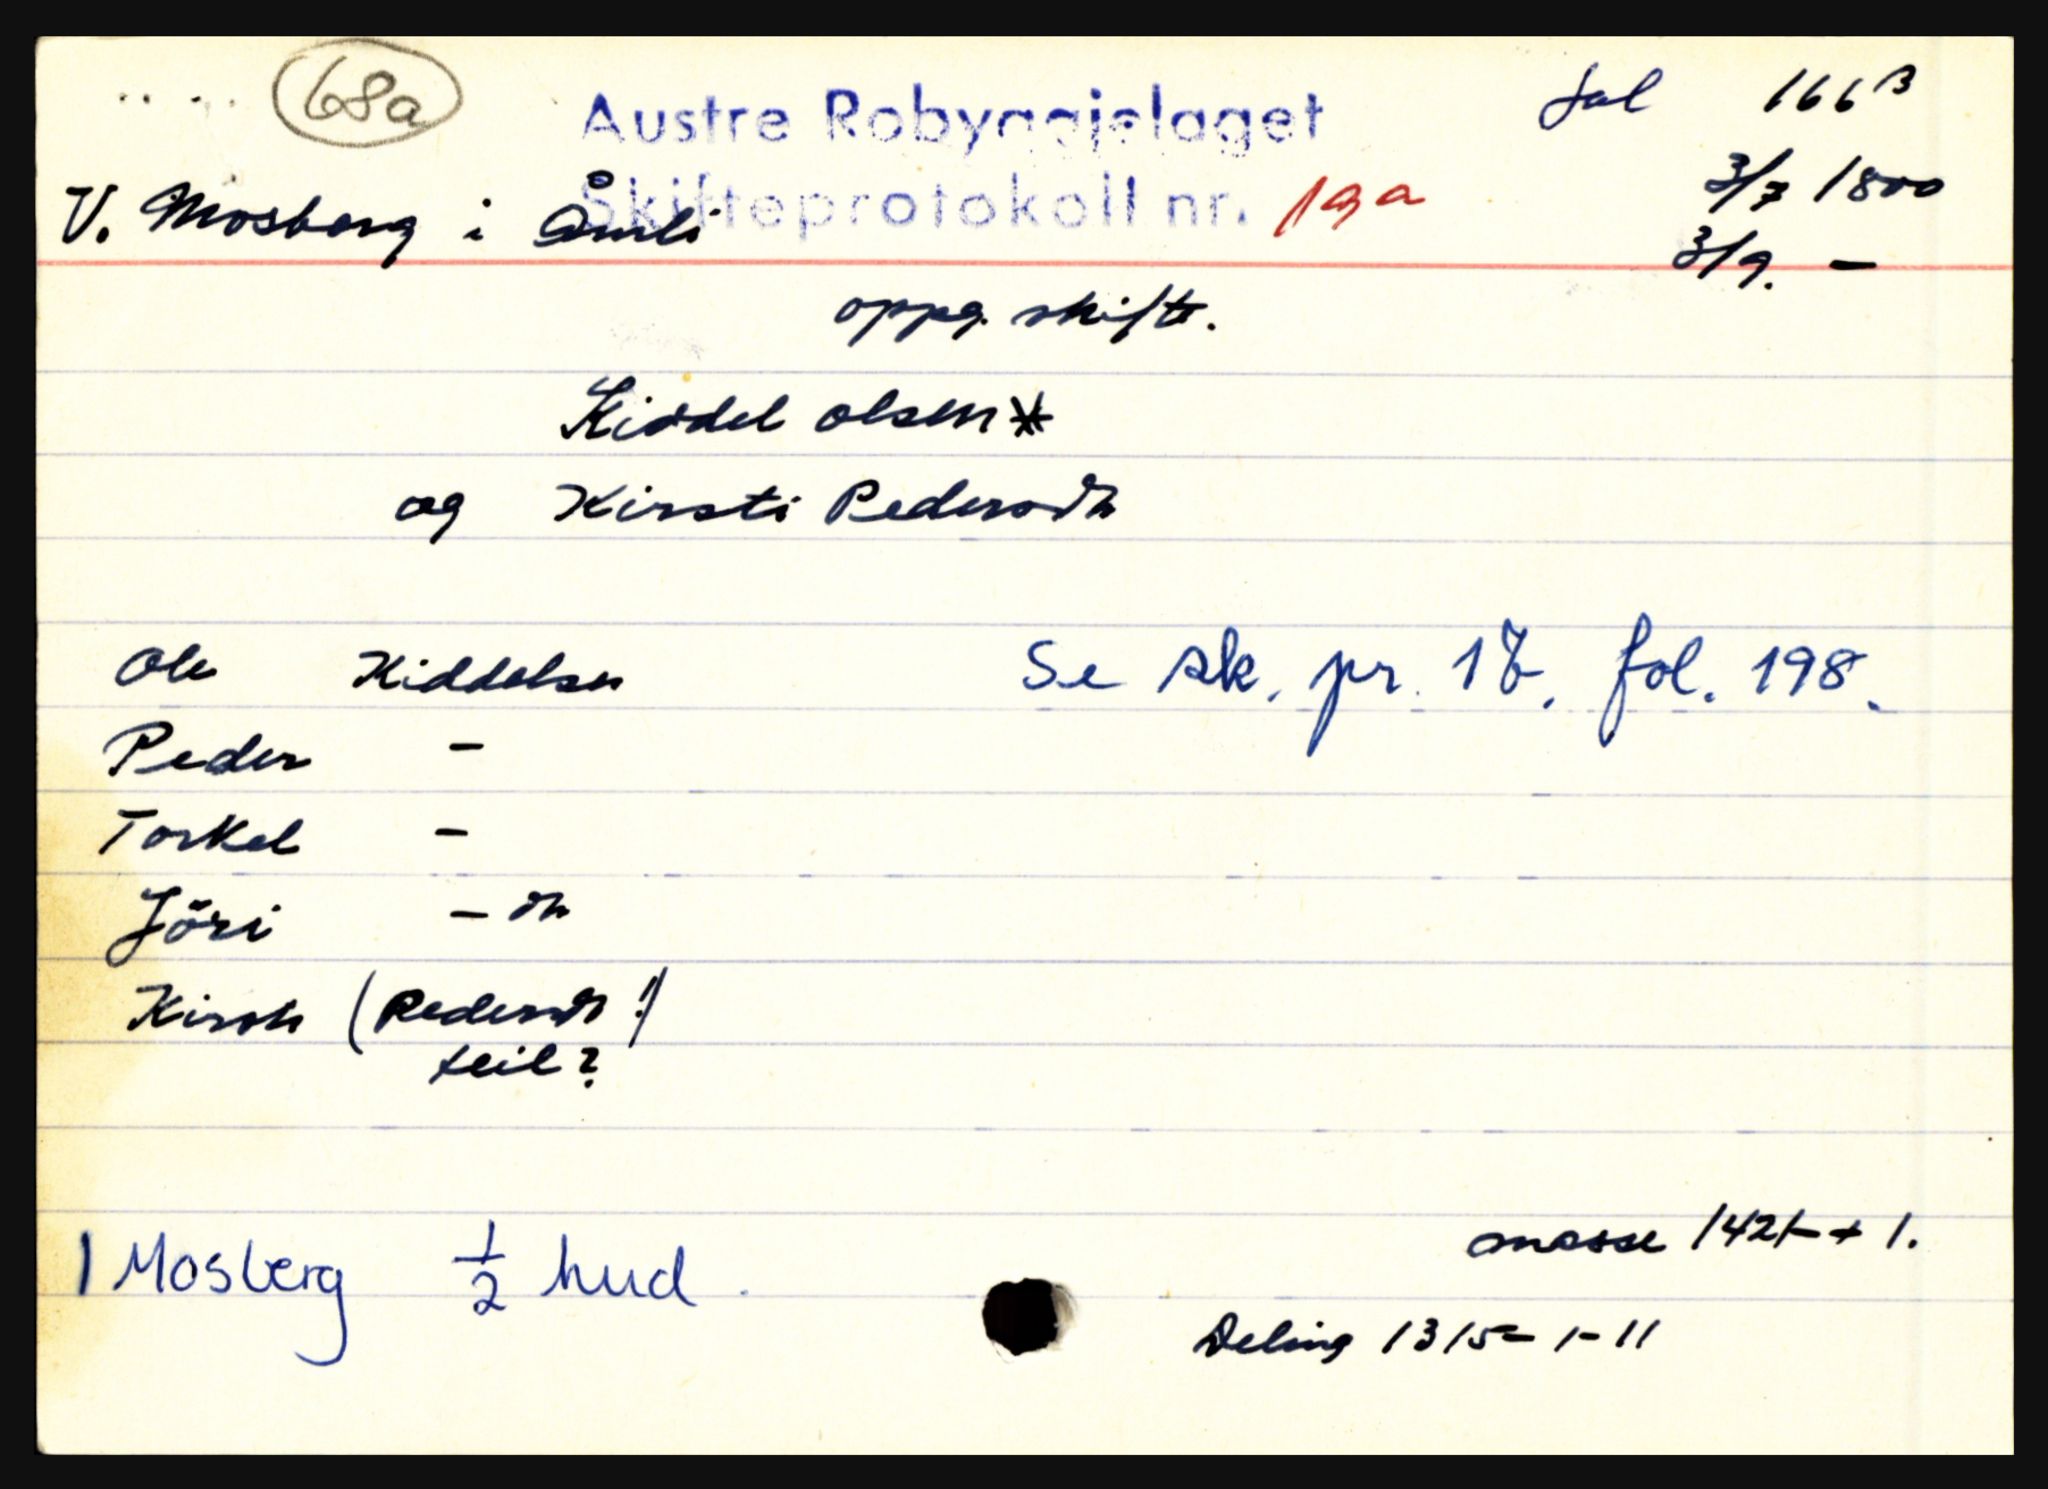 68a
Austre Robyggjelaget fol 166 B
Skifteprotokoll nr. 19a 3/7 1800
V. Mosberg i Åmli 3/9. -
oppg. skifte.
Kiddel Olsen *
og Kirsti Pedersdtr
Ole Kiddelsen Se sk. pr. 17, fol. 198.
Peder -
Torkel -
Jöri - dtr
Kirsti (Pedersdtr!)
feil?
masse 1421 - + 1.
1 Mosberg 1/2 hud.
Deling 1315 - 1 - 11